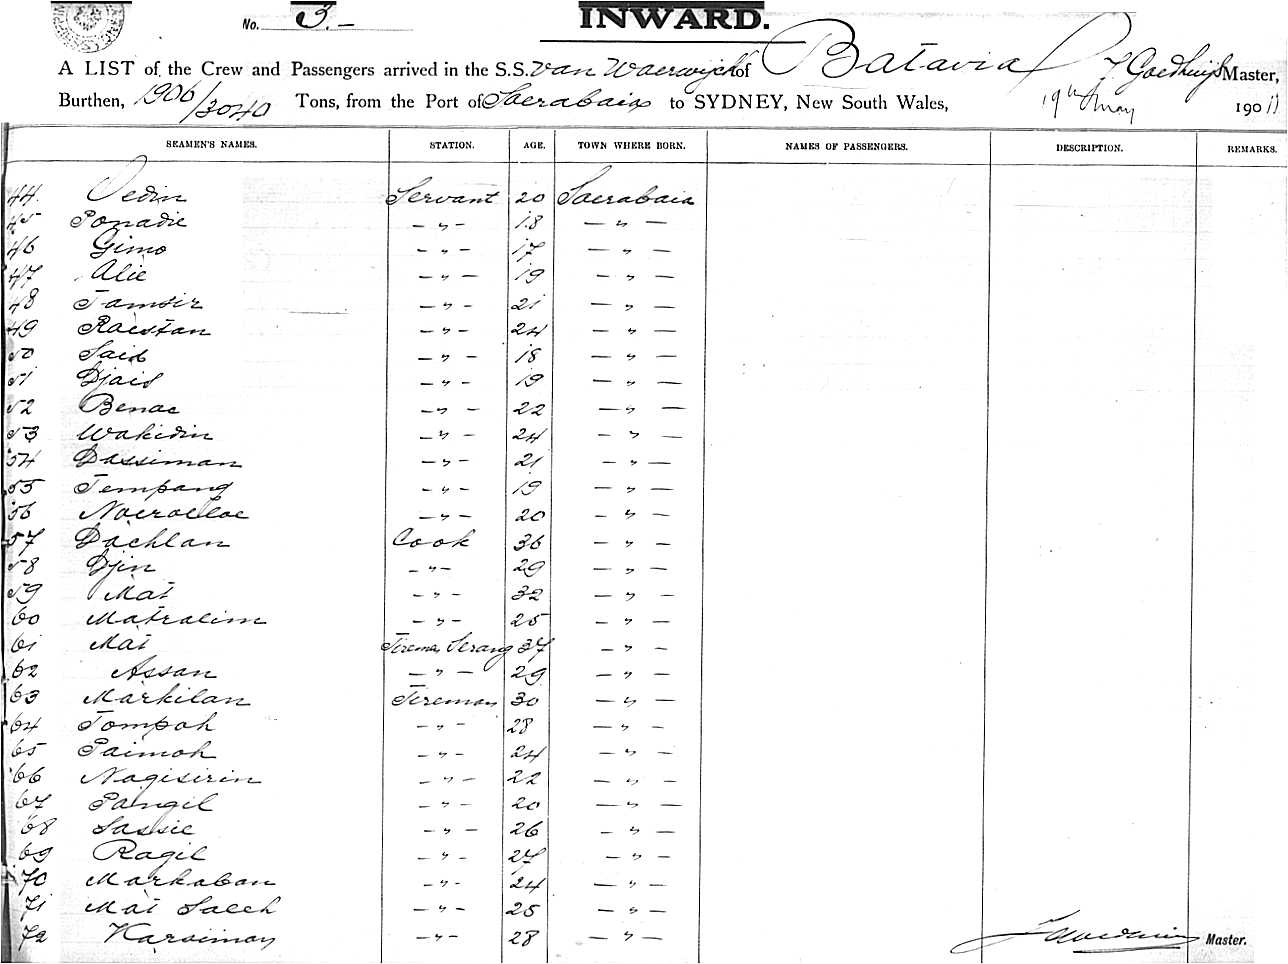 No. 3.-
INWARD.
A LIST of the Crew and Passengers arrived in the S.S. Van Waerwijck of Batavia, J Goedhuijs Master,
Burthen, 1906/3040 Tons, from the Port of Soerabaia to SYDNEY, New South Wales, 19th May 1911
SEAMEN'S NAMES. STATION. AGE. TOWN WHERE BORN. NAMES OF PASSENGERS. DESCRIPTION. REMARKS.
44. Oedin Servant 20 Soerabaia
45 Ponadie — „ — 18 — „ —
46 Gimo — „ — 17 — „ —
47 Alie — „ — 19 — „ —
48 Tamsir — „ — 21 — „ —
49 Raestan — „ — 24 — „ —
50 Said — „ — 18 — „ —
51 Djais — „ — 19 — „ —
52 Benae — „ — 22 — „ —
53 Wakidin — „ — 24 — „ —
54 Dassiman — „ — 21 — „ —
55 Tempang — „ — 19 — „ —
56 — „ — 20 — „ —
57 Dachlan Cook 36 — „ —
58 Djin — „ — 29 — „ —
59 Mat — „ — 32 — „ —
60 Matralim — „ — 25 — „ —
61 Mat Fireman Serang 37 — „ —
62 Assan — „ — 29 — „ —
63 Markilan Fireman 30 — „ —
64 Tompoh — „ — 28 — „ —
65 Paimoh — „ — 24 — „ —
66 Nagisirin — „ — 22 — „ —
67 Pangil — „ — 20 — „ —
68 Sassie — „ — 26 — „ —
69 Ragil — „ — 27 — „ —
70 Markaban — „ — 24 — „ —
71 Mat Saleh — „ — 25 — „ —
72 Karsiman — „ — 28 — „ —
J Goedhuijs Master.